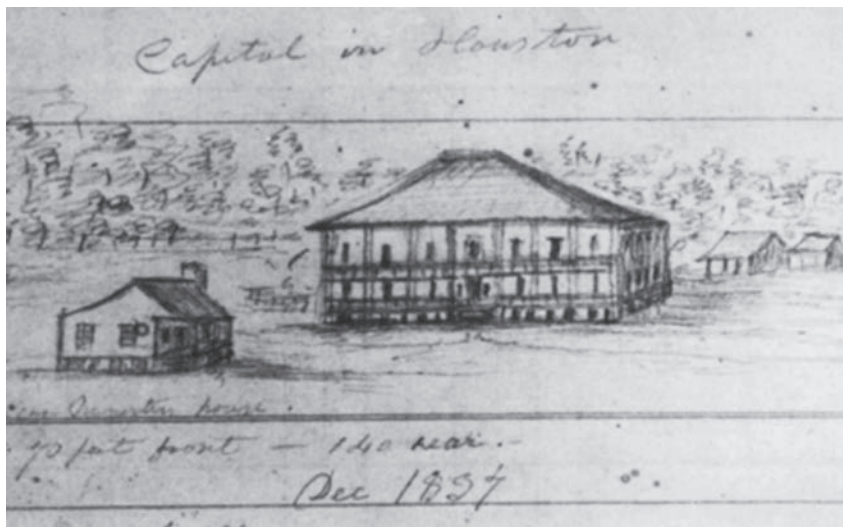 Capitol in Houston
house.
70 feet front — 140 rear.-
Dec 1837